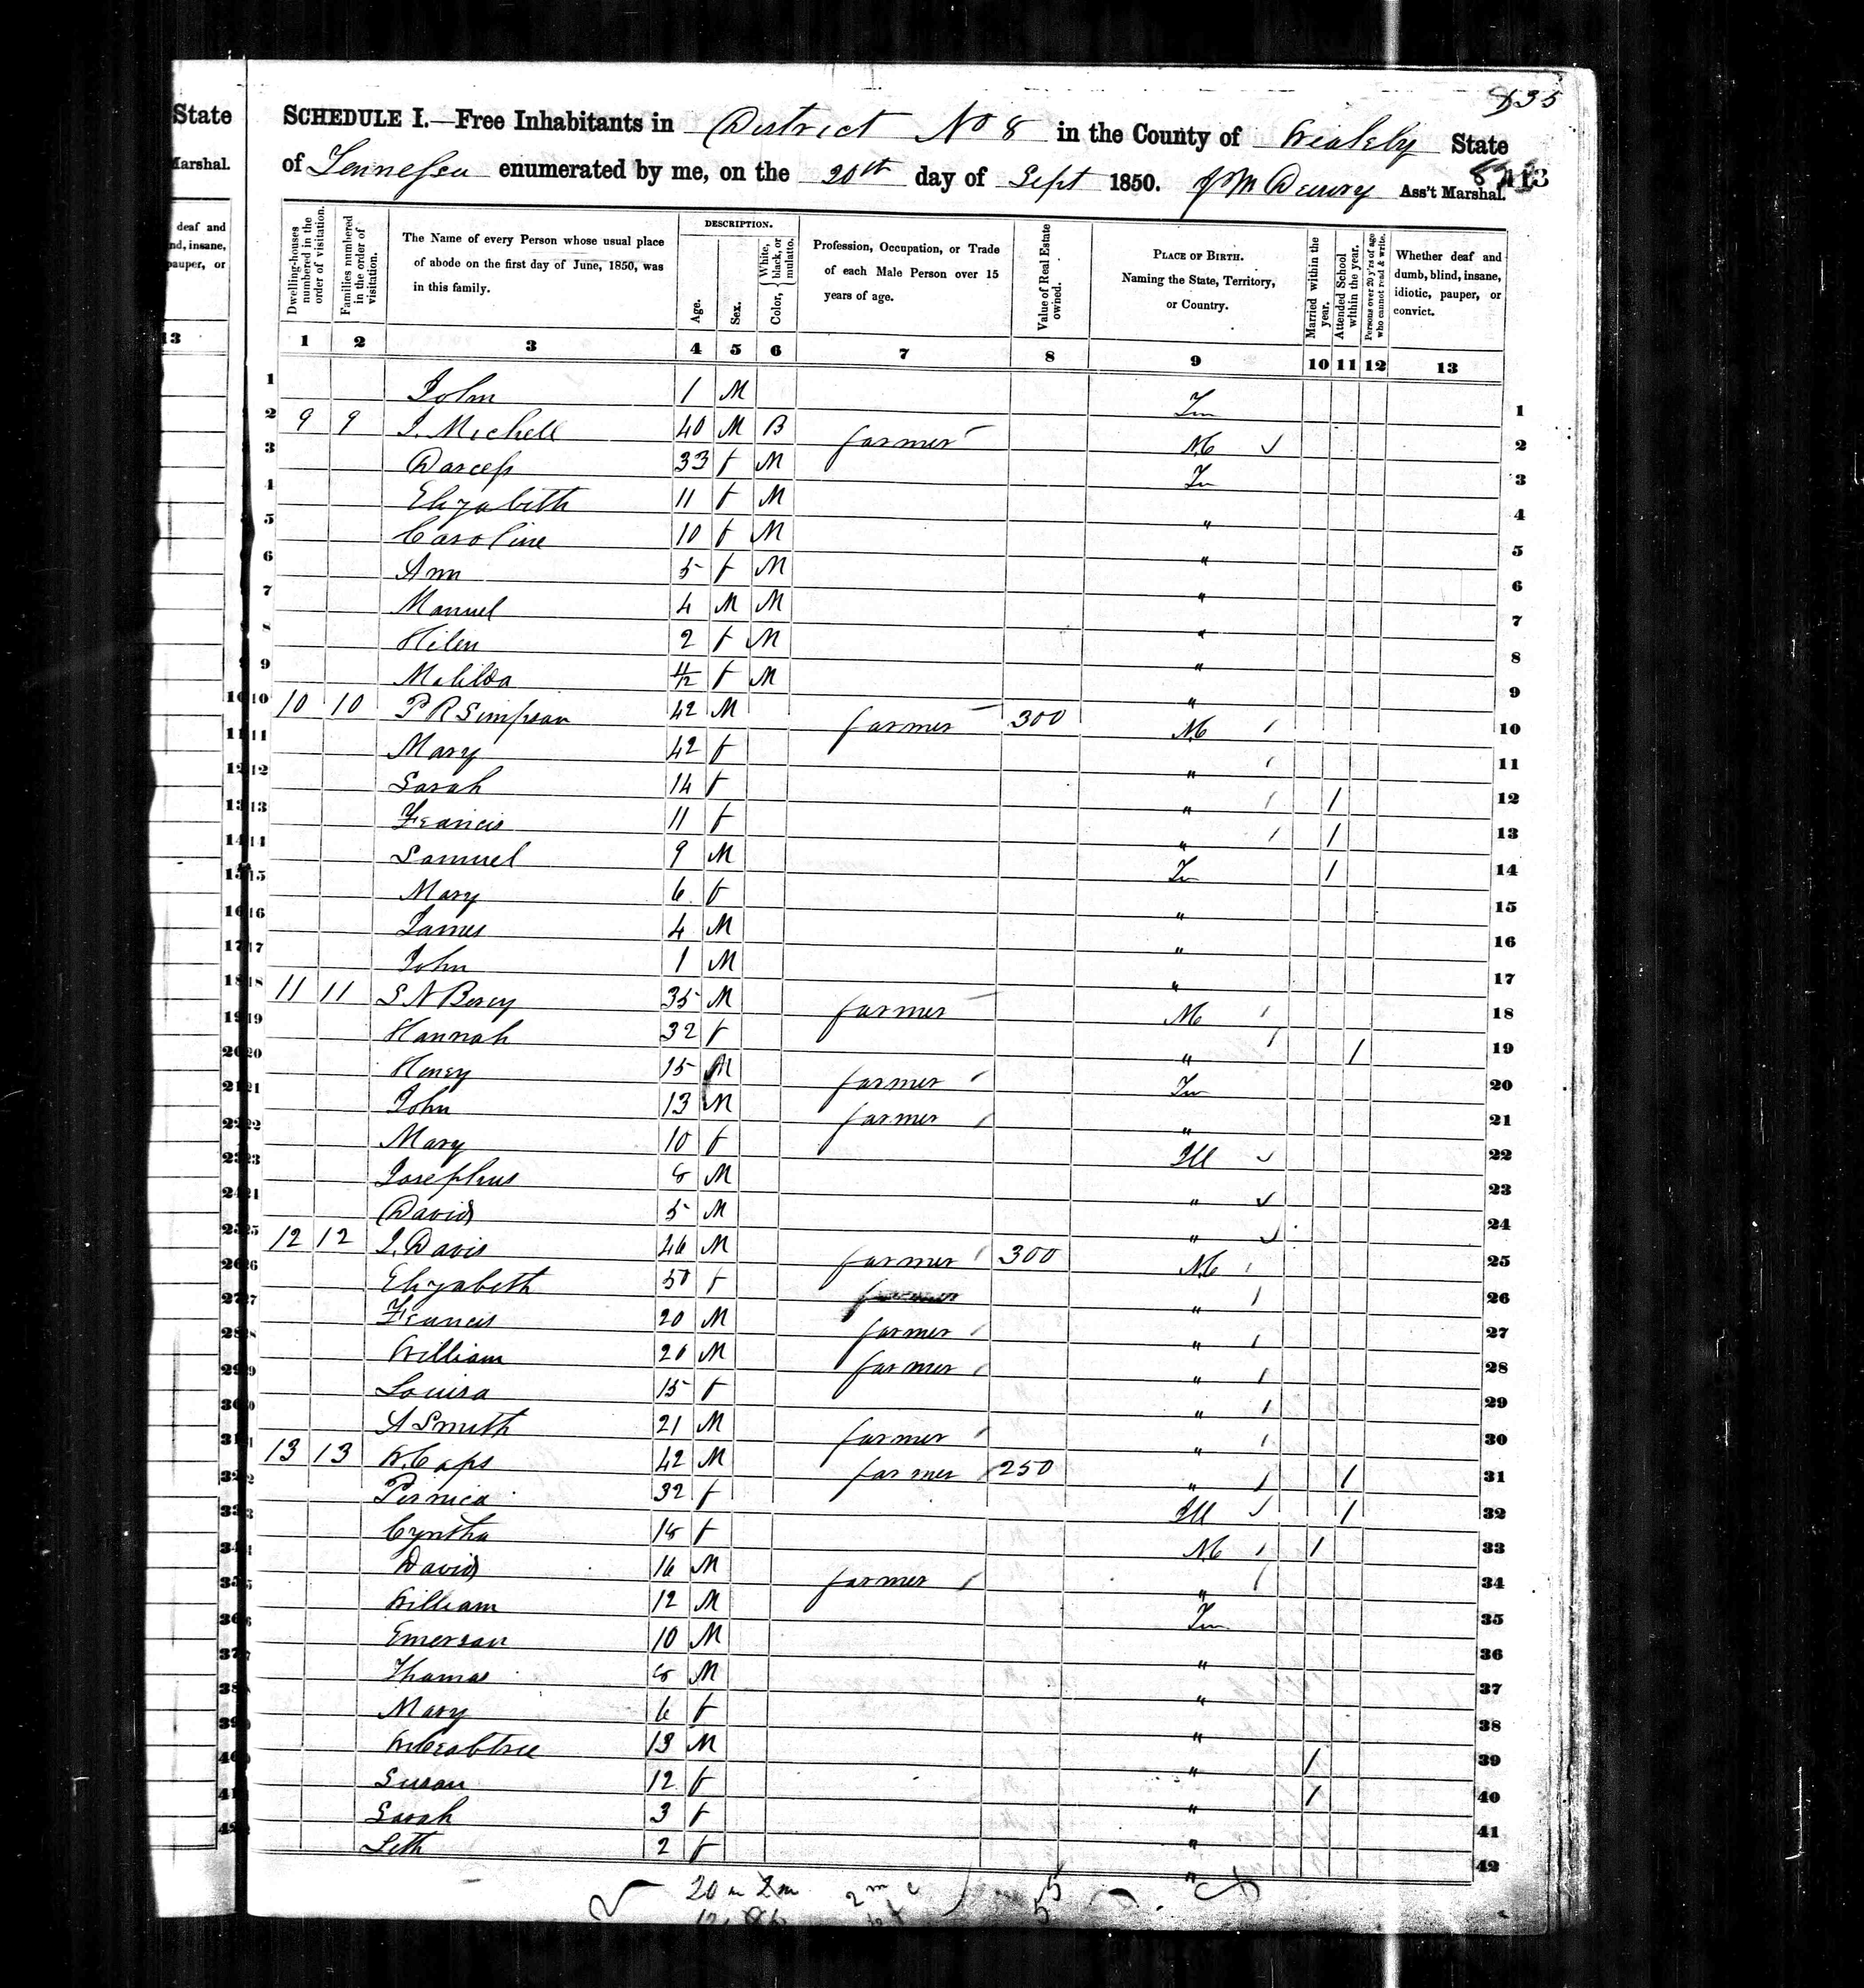 State
Marshal.
deaf and
nd, insane,
pauper, or
13
835
SCHEDULE I.—Free Inhabitants in District No 8 in the County of Weakly State
of Tennessee enumerated by me, on the 20th day of Sept 1850. Ass't Marshal.
Dwelling-houses numbered in the order of visitation.
Families numbered in the order of visitation.
The Name of every Person whose usual place of abode on the first day of June, 1850, was in this family.
DESCRIPTION.
Age.
Sex.
Color, { White, black, or mulatto.
Profession, Occupation, or Trade of each Male Person over 15 years of age.
Value of Real Estate owned.
PLACE OF BIRTH. Naming the State, Territory, or Country.
Married within the year.
Attended School within the year.
Persons over 20 y'rs of age who cannot read & write.
Whether deaf and dumb, blind, insane, idiotic, pauper, or convict.
1 2 3 4 5 6 7 8 9 10 11 12 13
1 John 1 M Tn 1
2 9 9 J. Mechell 40 M B farmer NC 2
3 33 f M Tn 3
4 Elizabeth 11 f M " 4
5 Caroline 10 f M " 5
6 Ann 5 f M " 6
7 Manuel 4 M M " 7
8 Hilen 2 f M " 8
9 Matilda f M " 9
10 10 10 P R Simpson 42 M farmer 300 NC 10
11 Mary 42 f " 11
12 Sarah 14 f " / 12
13 Francis 11 f " / 13
14 Samuel 9 M Tn / 14
15 Mary 6 f " 15
16 James 4 M " 16
17 John 1 M " 17
18 11 11 S N 35 M farmer NC 18
19 Hannah 32 f " / 19
20 Henry 15 M farmer Tn 20
21 John 13 M farmer " 21
22 Mary 10 f Ill 22
23 Josephus 8 M " 23
24 David 5 M " 24
25 12 12 J. Davis 46 M farmer 300 NC 25
26 Elizabeth 50 f " 26
27 Francis 20 M farmer " 27
28 William 20 M farmer " 28
29 Louisa 15 f " 29
30 A Smith 21 M farmer " 30
31 13 13 W. Caps 42 M farmer 250 " / 31
32 32 f Ill / 32
33 Cyntha 18 f NC / 33
34 David 16 M farmer " 34
35 William 12 M Tn 35
36 Emerson 10 M " 36
37 Thomas 8 M " 37
38 Mary 6 f " 38
39 W Crabtree 13 M " / 39
40 Susan 12 f " / 40
41 Sarah 3 f " 41
42 Seth 2 f " 42
20 m 2 m